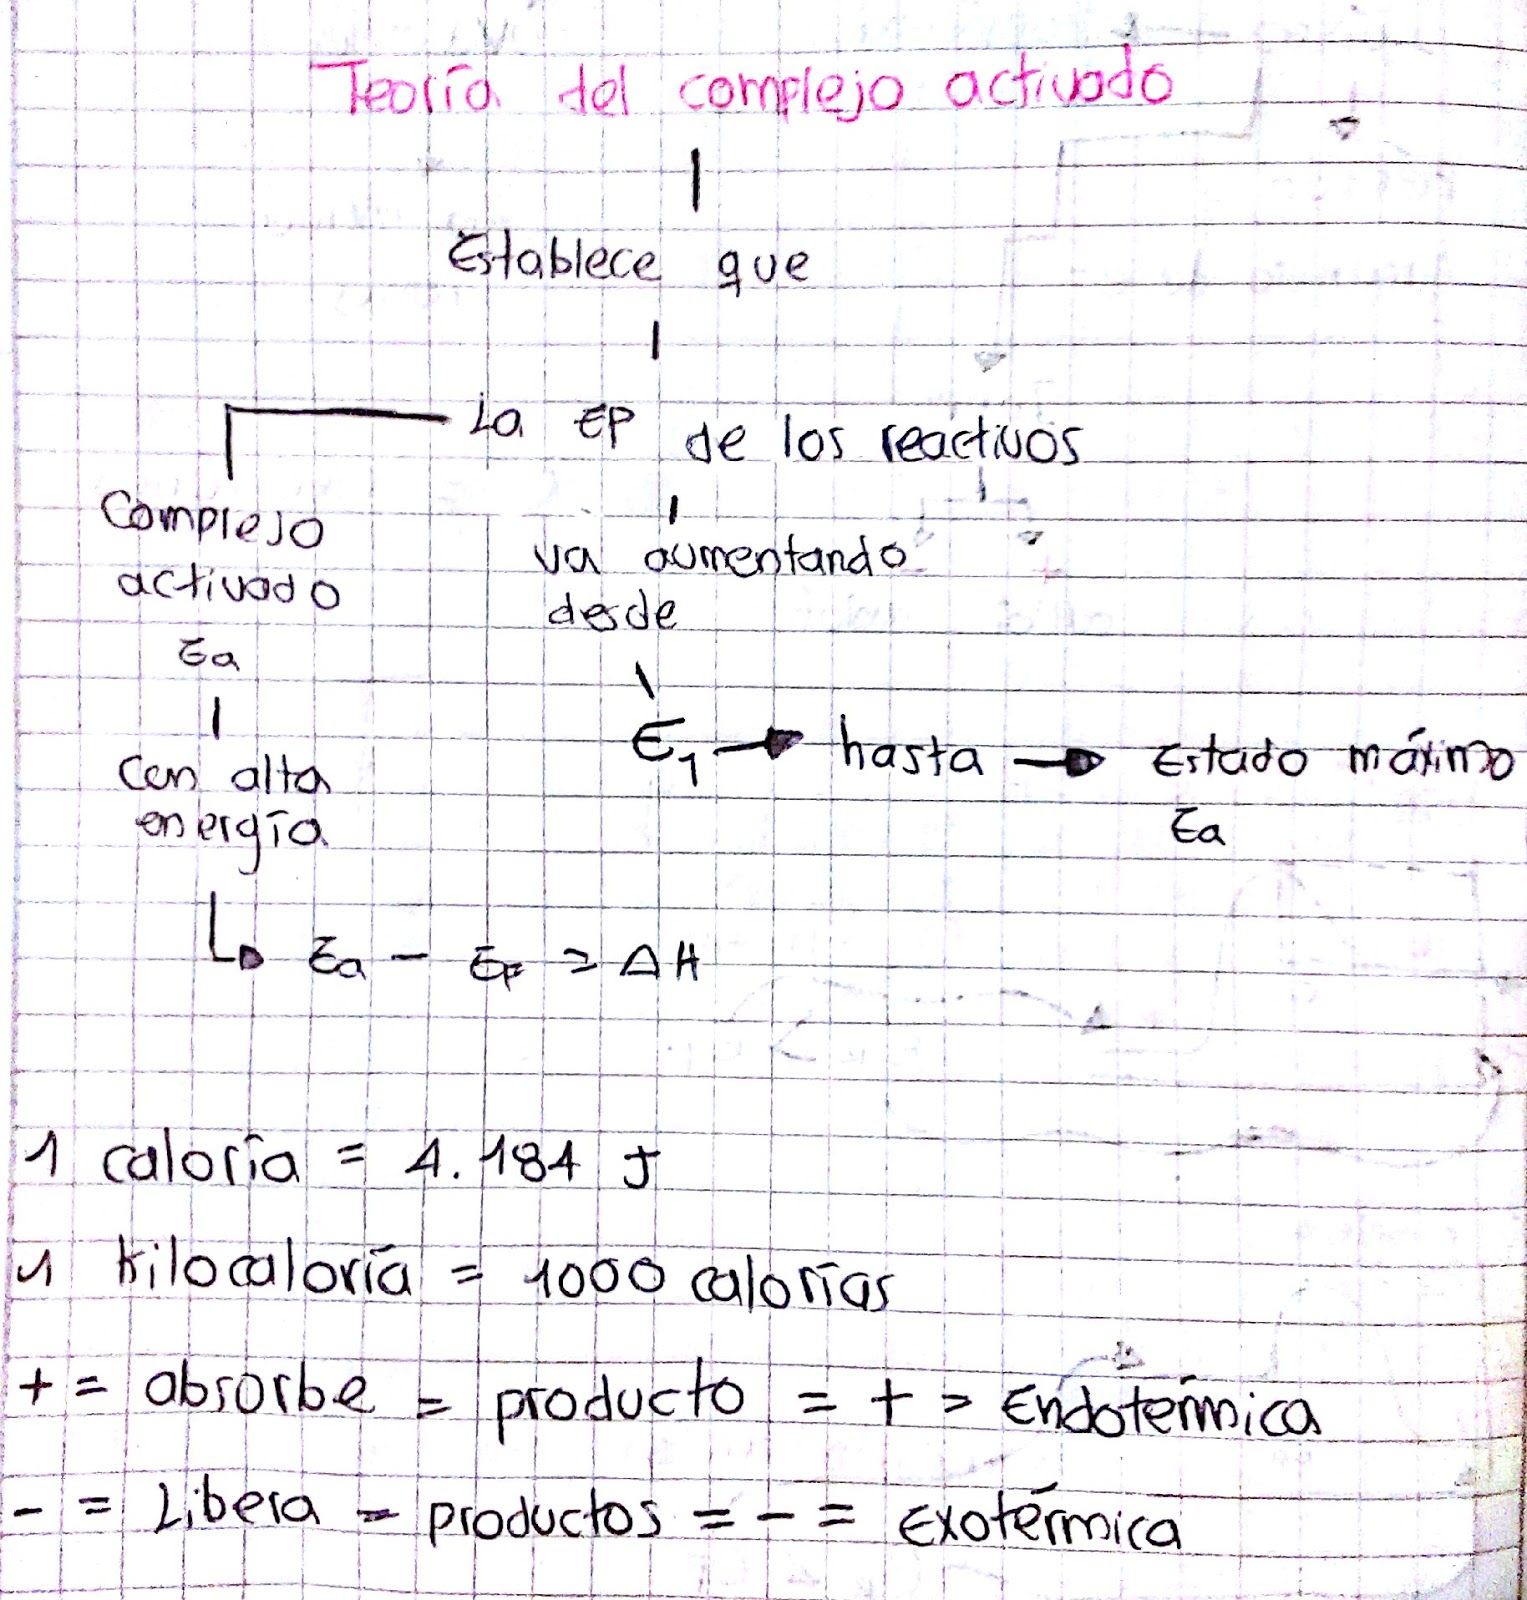 Teoría del complejo activado
Establece que
La EP de los reactivos
Complejo
activado
Ea
va aumentando
desde
E1 → hasta → Estado máximo
Ea
Con alta
energía
Ea - EF = ΔH
1 caloría = 4.184 J
1 kilocaloría = 1000 calorías
+ = absorbe = producto = + = Endotérmica
- = Libera = productos = - = Exotérmica